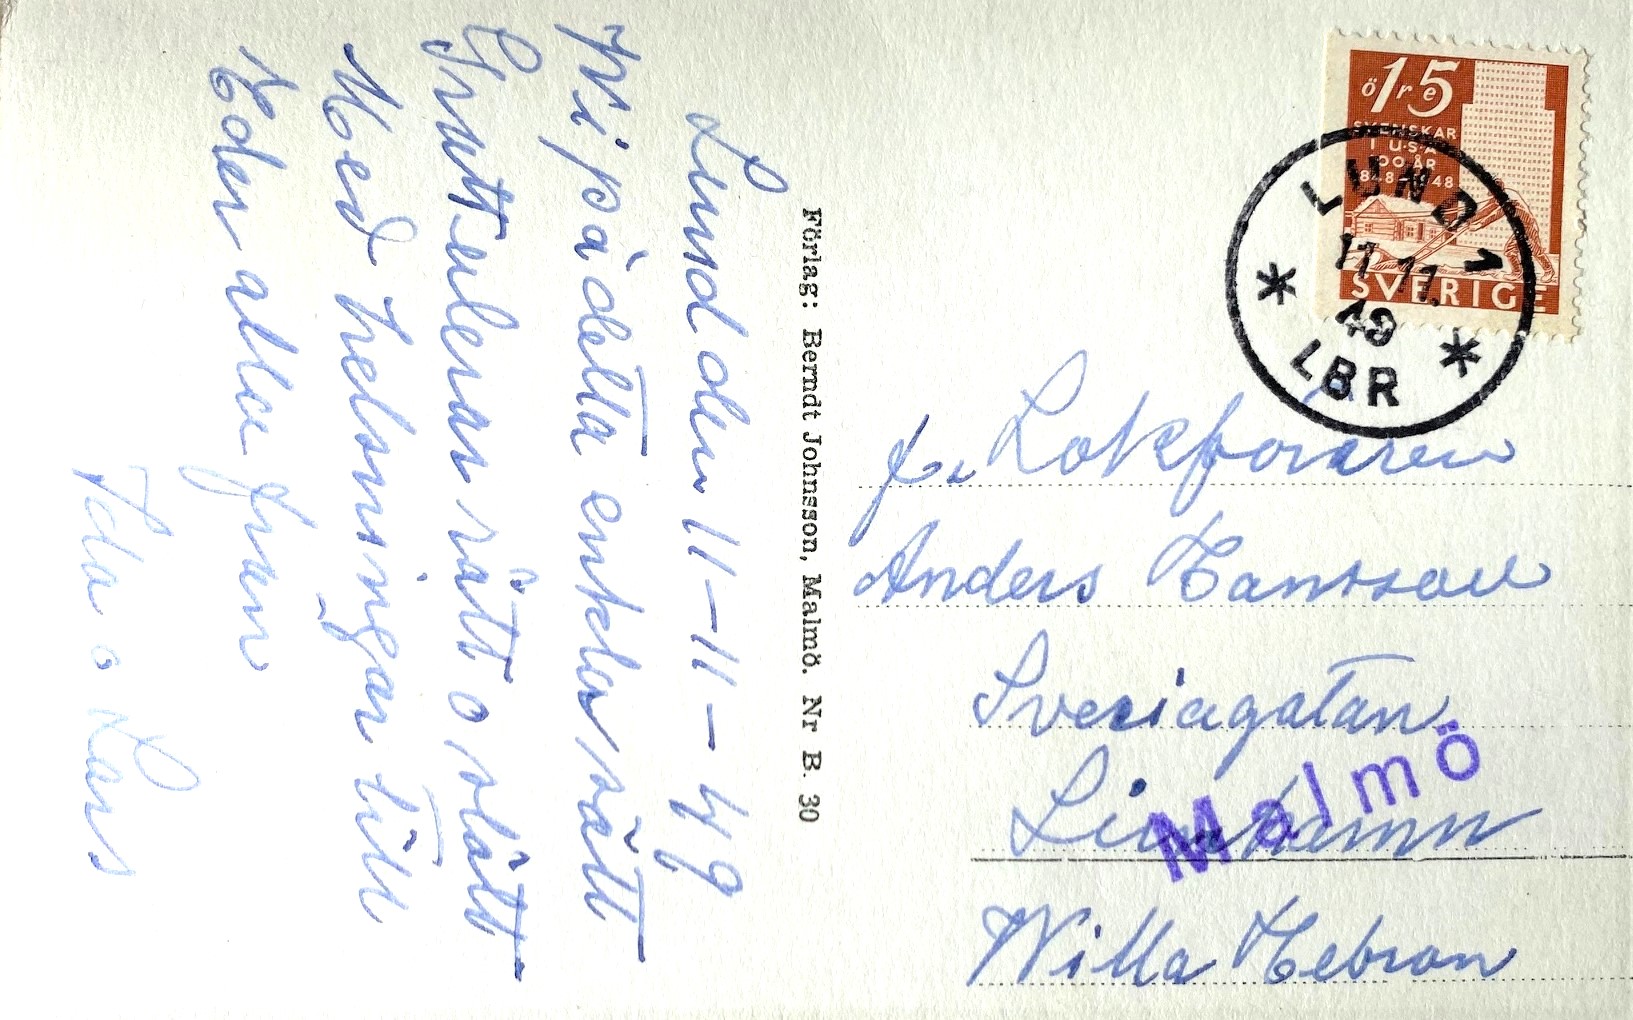 Lund den 11-11-49
Vi på detta enkla sätt
Gratulerar rätt o slätt
Med helsningar till
Eder alla från
Ida o Lars
Förlag: Berndt Johnsson, Malmö. Nr B. 30
öre 15
SVENSKAR
I U·S·A
100 ÅR
1848-1948
SVERIGE
LUND 1
11.11.
49
LBR
Lokföraren
Anders Hansson
Sveriagatan
Limhamn
Malmö
Willa Hebron